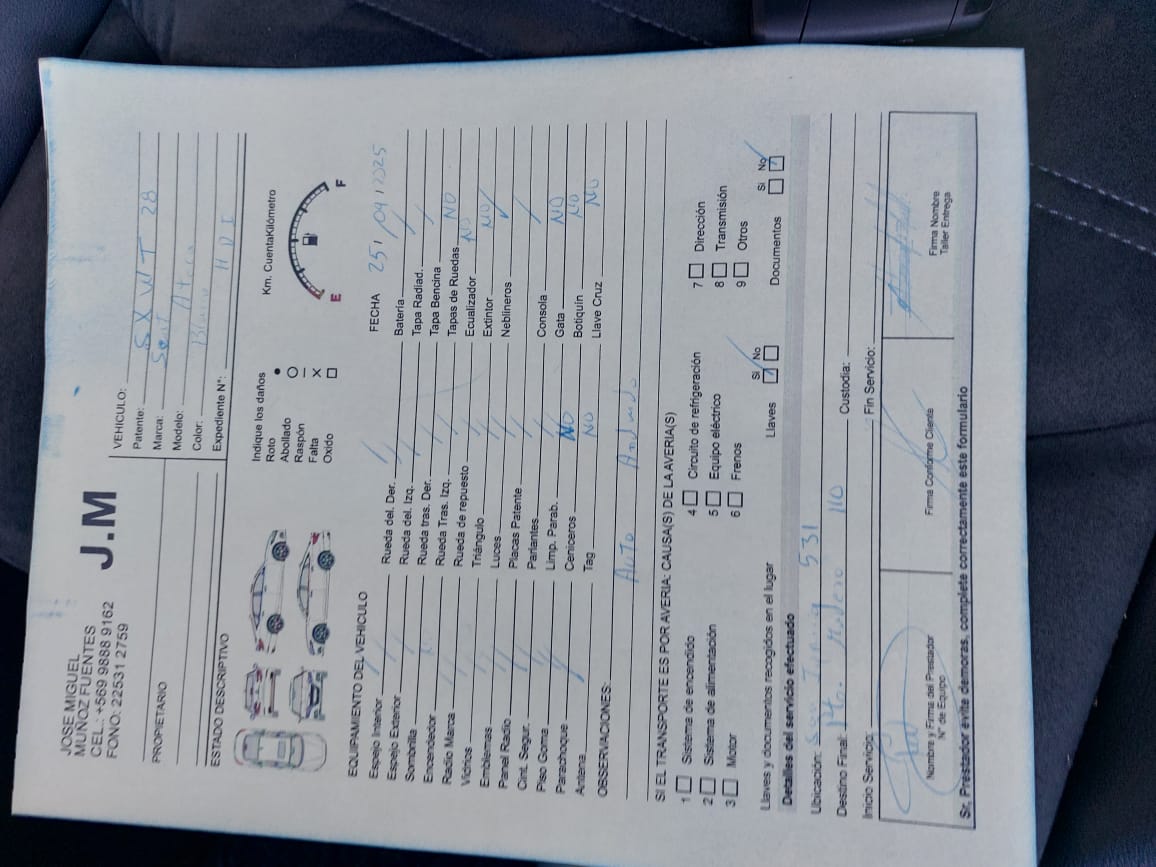 JOSE MIGUEL
MUÑOZ FUENTES
CEL.: +569 9888 9162
FONO: 22531 2759
J.M
VEHICULO:
Patente: SXWT 28
PROPIETARIO
Marca: Seat
Modelo: Ateca
Color: Blanco
Expediente N°: HDI
ESTADO DESCRIPTIVO
Indique los daños
Roto ●
Abollado ○
Raspón —
Falta X
Oxido □
Km. CuentaKilómetro
E F
EQUIPAMIENTO DEL VEHICULO
FECHA 25/04/2025
Espejo Interior / Rueda del. Der. / Batería /
Espejo Exterior / Rueda del. Izq. / Tapa Radiad. /
Sombrilla / Rueda tras. Der. / Tapa Bencina /
Encendedor / Rueda Tras. Izq. / Tapas de Ruedas NO
Radio Marca / Rueda de repuesto / Ecualizador NO
Vidrios / Triángulo / Extintor NO
Emblemas / Luces / Neblineros /
Panel Radio / Placas Patente /
Cint. Segur. / Parlantes / Consola /
Piso Goma / Limp. Parab. / Gata NO
Parachoque / Ceniceros NO Botiquín NO
Antena / Tag NO Llave Cruz NO
OBSERVACIONES:
Auto Andando
SI EL TRANSPORTE ES POR AVERIA: CAUSA(S) DE LA AVERIA(S)
1 □ Sistema de encendido 4 □ Circuito de refrigeración 7 □ Dirección
2 □ Sistema de alimentación 5 □ Equipo eléctrico 8 □ Transmisión
3 □ Motor 6 □ Frenos 9 □ Otros
Si No Si No
Llaves y documentos recogidos en el lugar Llaves Documentos
Detalles del servicio efectuado
Ubicación: 531
Destino Final: Pto. Madero 110 Custodia:
Inicio Servicio: Fin Servicio:
Nombre y Firma del Prestador
N° de Equipo
Firma Conforme Cliente
Firma Nombre
Taller Entrega
Sr. Prestador evite demoras, complete correctamente este formulario